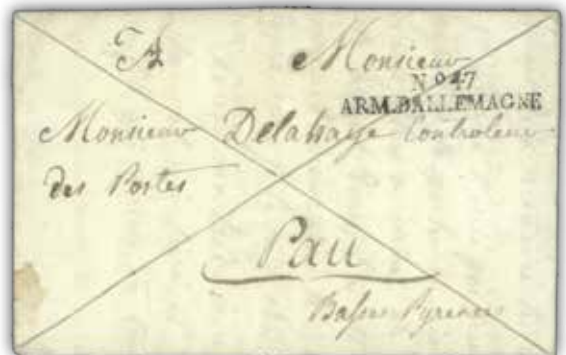 A Monsieur
No 47
ARM.D'ALLEMAGNE
Monsieur Delahaye Controleur
des Postes
Pau
Basses Pyrenees